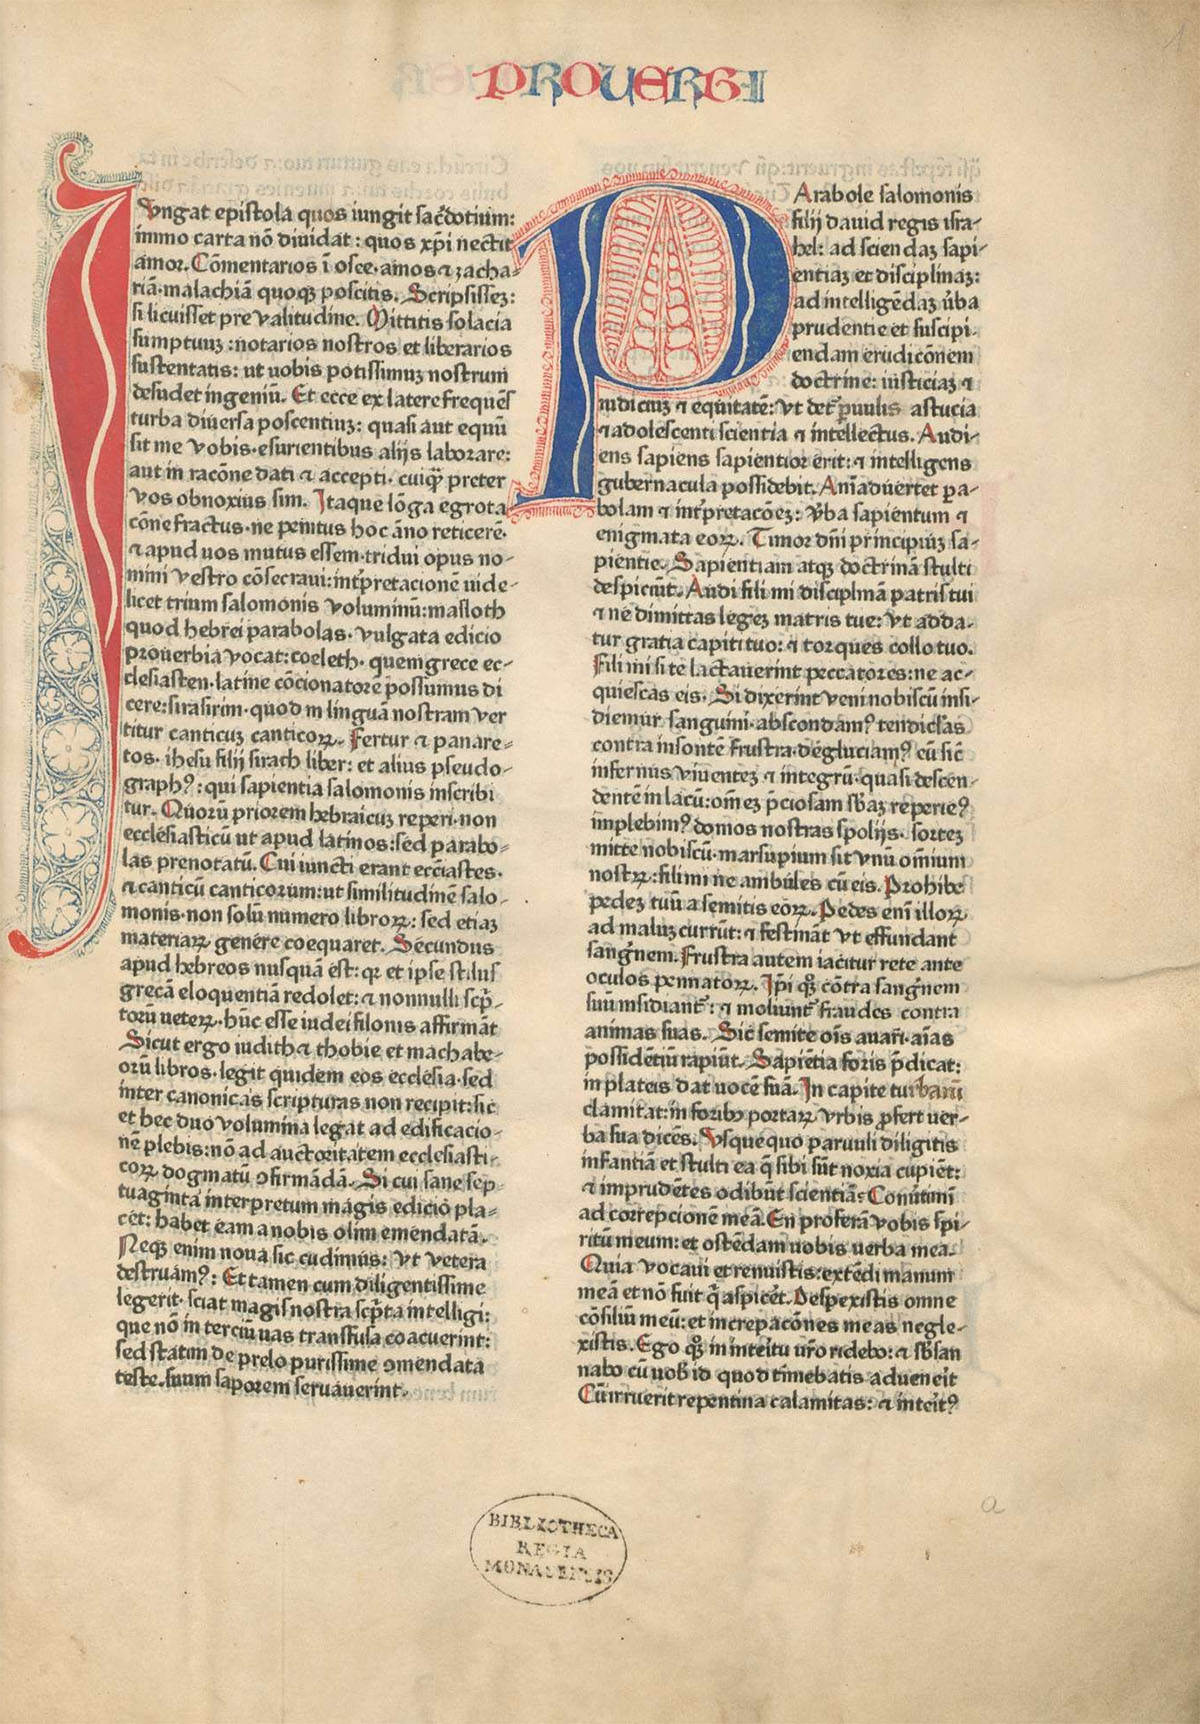 PROUERBI
Vngat epistola quos iungit sac̄dotium:
immo carta nō diuidat: quos xp̄i nectit
amor. Cōmentarios ī osce·amos ⁊ zacha⸗
riā·malachiā quoqꝫ poscitis. Scripsisseꝫ:
si licuisset pre valitudine. Mittitis solacia
sumptuuꝫ: notarios nostros et librarios
sustentatis: ut uobis potissimuꝫ nostrum
desudet ingeniū. Et ecce ex latere frequēs
turba diuersa poscentiuꝫ: quasi aut equū
sit me vobis esurientibus alijs laborare:
aut in racōne dati ⁊ accepti· cuiqꝫ preter
vos obnoxius sim. Itaque lōga egrota
cōne fractus·ne penitus hoc āno reticerē·
⁊ apud uos mutus essem·tridui opus no⸗
mini vestro cōsecraui:int̄pretacionē uide⸗
licet trium salomonis voluminū:masloth
quod hebrei parabolas· vulgata edicio
prouerbia vocat:coeleth· quem grece ec⸗
clesiasten·latine cōcionatorē possumus di
cere:sirasirim·quod in linguā nostram ver
titur canticuꝫ canticoꝝ. Fertur ⁊ panare⸗
tos· ihesu filij sirach liber: et alius pseudo⸗
graphꝰ: qui sapientia salomonis inscribi
tur. Quorū priorem hebraicuꝫ reperi·non
ecclesiasticū ut apud latinos:sed parabo⸗
las prenotatū. Cui iuncti erant ecc̄iastes·
⁊ canticū canticorum:ut similitudinē salo⸗
monis·non solū numero libroꝝ: sed etiaꝫ
materiaꝝ genere coequaret. Secundus
apud hebreos nusquā ēst: qꝛ et ipse stilus
grecā eloquentiā redolet: ⁊ nonnulli sc̄p⸗
torū veteꝝ· hūc esse iudei filonis affirmāt
Sicut ergo iudith ⁊ thobie et machabe⸗
orū libros·legit quidem eos ecclesia·sed
inter canonicas scripturas non recipit:sic
et hec duo volumina legat ad edificacio⸗
nē plebis:nō ad auctoritatem ecclesiasti⸗
coꝝ dogmatū ꝯfirmādā. Si cui sane sep⸗
tuaginta interpretum magis edicio pla⸗
cet: habet eam a nobis olim emendatā.
Neqꝫ enim noua sic cudimus: vt vetera
destruamꝰ: Et tamen cum diligentissime
legerit·sciat magis nostra scp̄ta intelligi:
que nō in terciū uas transfusa coacuerint:
sed statim de prelo purissime ꝯmendata
teste·suum saporem seruauerint·
PArabole salomonis
filij dauid regis isra⸗
hel: ad sciendaꝫ sapi⸗
entiaꝫ et disciplinaꝫ:
ad intelligēdaꝫ v̄ba
prudentie et suscipi⸗
endam erudicōnem
doctrine: iusticiaꝫ ⁊
iudiciuꝫ ⁊ equitatē: vt det̄ ꝑuulis astucia
⁊ adolescenti scientia ⁊ intellectus. Audi⸗
ens sapiens sapientior erit: ⁊ intelligens
gubernacula possidebit. Aniāduertet pa⸗
bolam ⁊ int̄pretacōeꝫ: v̄ba sapientum ⁊
enigmata eoꝝ. Timor dn̄i principiuꝫ sa⸗
pientie. Sapientiam atqꝫ doctrinā stulti
despiciūt. Audi fili mi disciplinā patris tui
⁊ ne dimittas legeꝫ matris tue: vt adda⸗
tur gratia capiti tuo: ⁊ torques collo tuo.
Fili mi si te lactauerint peccatores:ne ac⸗
quiescas eis. Si dixerint veni nobiscū insi⸗
diemur sanguini·abscondamꝰ tendicl̄as
contra insontē frustra·deglutiamꝰ eū sic̄
infernus viuenteꝫ ⁊ integrū·quasi descen⸗
dentē in lacū:om̄eꝫ p̄ciosam sb̄aꝫ reperieꝰ
implebimꝰ domos nostras spolijs· sorteꝫ
mitte nobiscū·marsupium sit vnū om̄ium
nostꝝ:fili mi ne ambules cū eis. Prohibe
pedeꝫ tuū a semitis eōꝝ. Pedes eni illoꝝ
ad maluꝫ currūt: ⁊ festināt vt effundant
sanḡnem. Frustra autem iacitur rete ante
oculos pennatoꝝ. Ip̄i qꝫ cōtra sanḡnem
suū insidiant̄: ⁊ moliunt̄ fraudes contra
animas suas. Sic semite ōis auari·aīas
possidētiū rapiūt. Sapiētia foris p̄dicat:
in plateis dat vocē suā. In capite turbarū
clamitat:in foribꝰ portaꝝ vrbis ꝓfert uer⸗
ba sua dicēs. Vsquequo paruuli diligitis
infantiā et stulti ea q̄ sibi sūt noxia cupiēt:
⁊ imprudētes odibūt scientiā: Conūtimī
ad correpcionē meā. En proferā vobis spi⸗
ritū meum: et ostēdam uobis uerba mea.
Quia vocaui et renuistis:extēdi manum
meā et nō fuit q̄ aspicēt. Despexistis omne
cōsiliū meū:et increpacōnes meas negle⸗
xistis. Ego qꝫ in interitu vr̄o ridebo: ⁊ sb̄san
nabo cū uob id quod timebatis adueneit
Cū irruerit repentina calamitas: ⁊ inteitꝰ
a
BIBLIOTHECA
REGIA
MONACENSIS